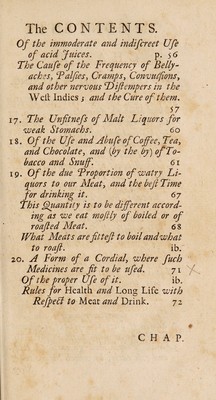 The CONTENTS.
Of the immoderate and indiſcreet Uſe
of acid Juices. p. 56
The Cauſe of the Frequency of Belly-
aches, Palſies, Cramps, Convulſions,
and other nervous Diſtempers in the
Weſt Indies; and the Cure of them.
57
17. The Unfitneſs of Malt Liquors for
weak Stomachs. 60
18. Of the Uſe and Abuſe of Coffee, Tea,
and Chocolate, and (by the by) of To-
bacco and Snuff. 61
19. Of the due Proportion of watry Li-
quors to our Meat, and the beſt Time
for drinking it. 67
This Quantity is to be different accord-
ing as we eat moſtly of boiled or of
roaſted Meat. 68
What Meats are fitteſt to boil and what
to roaſt. ib.
20. A Form of a Cordial, where ſuch
Medicines are fit to be uſed. 71 X
Of the proper Uſe of it. ib.
Rules for Health and Long Life with
Reſpect to Meat and Drink. 72
CHAP.